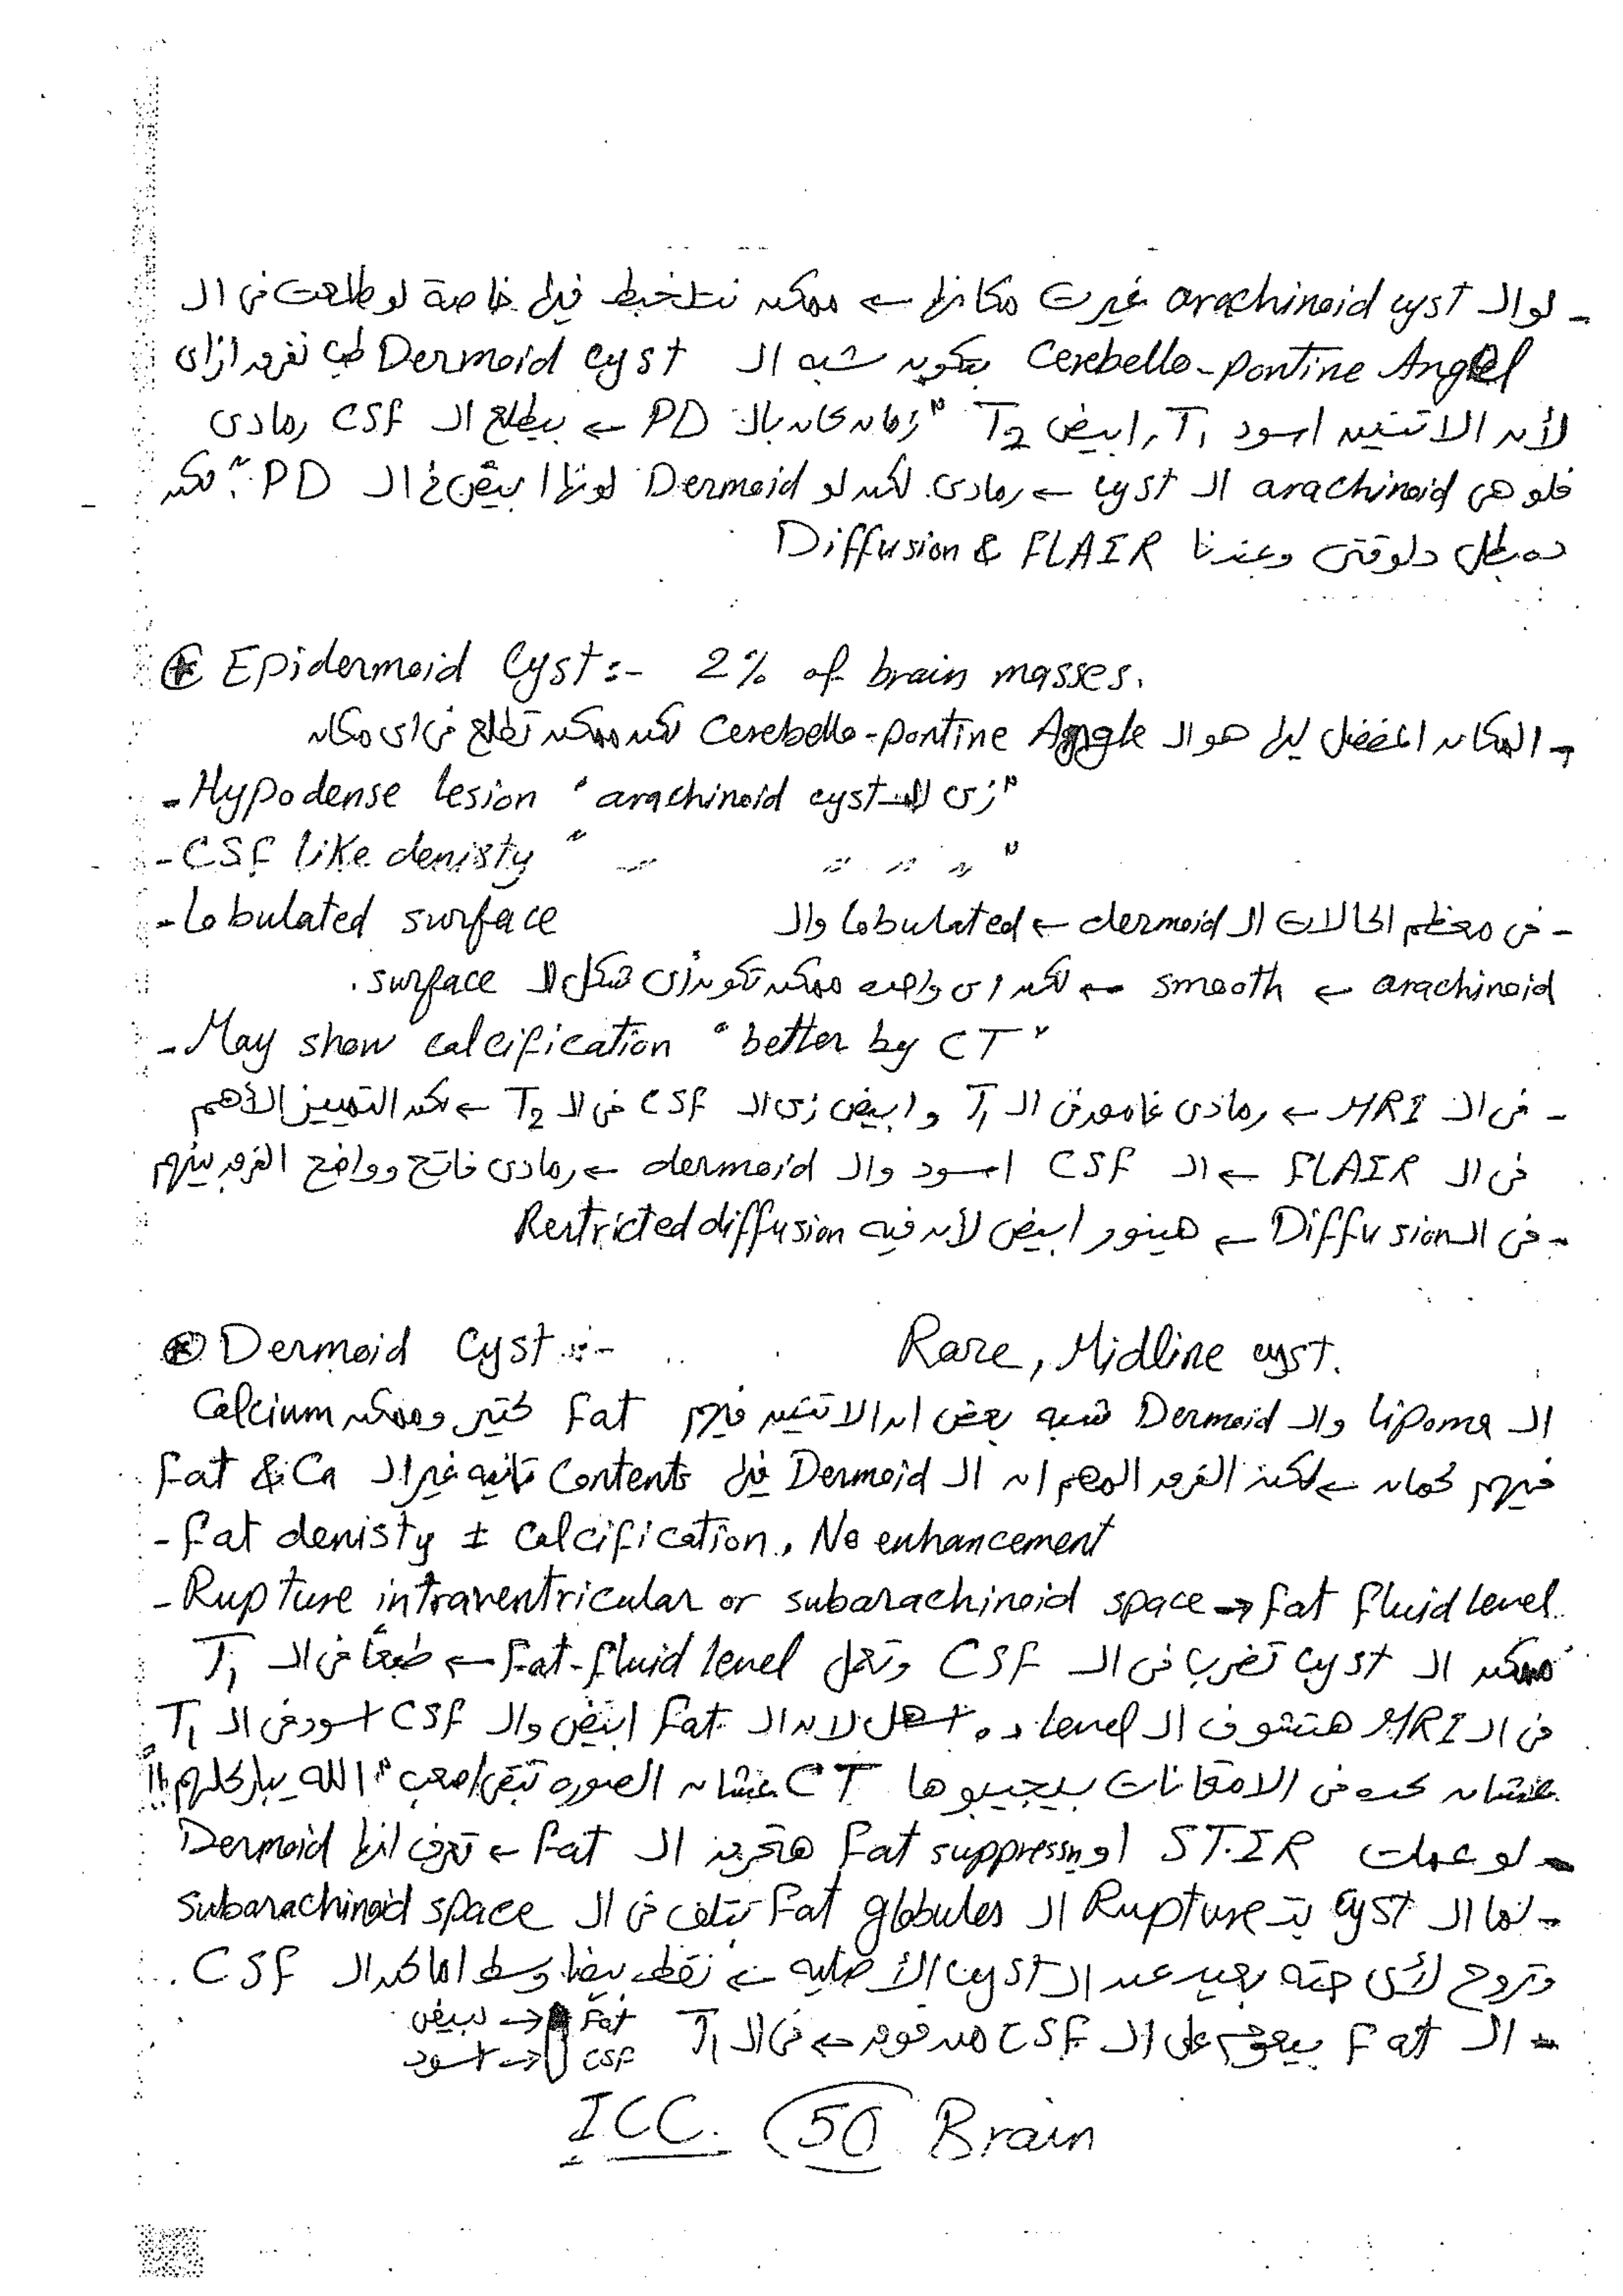 - لو الـ arachinoid cyst غيرت مكانها ← ممكن نتلخبط فيها خاصة لو طلعت فى الـ
Cerebello-pontine Angel بتكون شبه الـ Dermoid cyst طب نفرق ازاى
لأن الاتنين اسود T1, ابيض T2 " زمان كان بالـ PD ← بيطلع الـ CSF رمادى
فلو هى arachinoid الـ cyst ← رمادى. لكن لو Dermoid لونها ابيض فى الـ PD ". لكن
ده بطل دلوقتى وعندنا Diffusion & FLAIR
* Epidermoid Cyst :- 2% of brain masses.
- المكان المفضل ليها هو الـ Cerebello-pontine Angle لكن ممكن تطلع فى اى مكان
- Hypodense lesion " زى الـ arachinoid cyst "
- CSF like denisty " " " " " "
- Lobulated surface - فى معظم الحالات الـ dermoid ← lobulated والـ
arachinoid ← smooth ← لكن اى واحده ممكن تكون زى شكل الـ surface .
- May show calcification " better by CT "
- فى الـ MRI ← رمادى غامق فى الـ T1 و ابيض زى الـ CSF فى الـ T2 ← لكن التمييز الأهم
فى الـ FLAIR ← الـ CSF اسود والـ dermoid ← رمادى فاتح وواضح الفرق بينهم
- فى الـ Diffusion ← هينور ابيض لأن فيه Restricted diffusion
* Dermoid Cyst :- Rare, Midline cyst.
الـ Lipoma والـ Dermoid شبه بعض ان الاتنين فيهم fat كتير وممكن Calcium
فيهم كمان ← لكن الفرق المهم ان الـ Dermoid فيها Contents تانيه غير الـ Fat & Ca
- Fat denisty ± Calcification, No enhancement
- Rupture intraventricular or subarachinoid space → fat fluid level.
ممكن الـ cyst تضرب فى الـ CSF وتعمل Fat-fluid level ← طبعاً فى الـ T1
فى الـ MRI هتشوف الـ Level ده اسهل لان الـ Fat ابيض والـ CSF اسود فى الـ T1
علشان كده فى الامتحانات بيجيبوها CT عشان الصوره تبقى اصعب " الله يباركلهم !! "
- لو عملت STIR او Fat suppression هتحرق الـ Fat ← تعرف انها Dermoid
- لما الـ cyst بتـ Rupture الـ Fat globules بتلف فى الـ subarachinoid space
وتروح لأى حته بعيد عن الـ cyst الأصليه ← نقط بيضا وسط اماكن الـ CSF .
- الـ Fat بيعوم على الـ CSF من فوق ← فى الـ T1 Fat → ابيض
CSF → اسود
ICC. 50 Brain